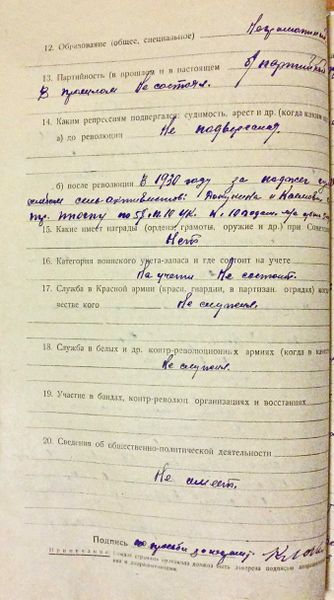 12. Образование (общее, специальное) Неграмотный
13. Партийность (в прошлом и в настоящем б/партийный
В прошлом не состоял.
14. Каким репрессиям подвергался: судимость, арест и др. (когда каким
а) до революции Не подвергался.
б) после революции В 1930 году за поджог
сель-активистов: и
тр. по 58-8-10 УК. к 10 годам
15. Какие имеет награды (ордена, грамоты, оружие и др.) при Советс
Нет
16. Категория воинского учета-запаса и где состоит на учете
На учете не состоит.
17. Служба в Красной армии (красн. гвардии, в партизан. отрядах) ког
честве кого Не служил.
18. Служба в белых и др. контр-революционных армиях (когда в как
Не служил.
19. Участие в бандах, контр-революц. организациях и восстаниях
20. Сведения об общественно-политической деятельности
Не имеет.
Подпись
Примечание: Каждая страница протокола должна быть заверена подписью
и допрашивающего.